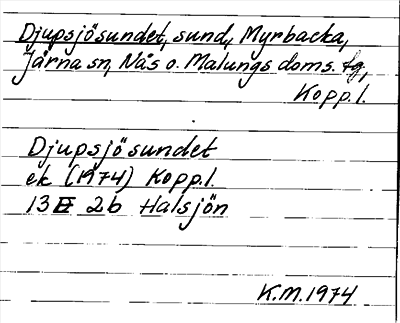 Djupsjösundet, sund, Myrbacka,
Järna sn, Nås o. Malungs doms. tg,
Kopp. l.
Djupsjösundet
ek (1974) Kopp. l.
13 E 2b Halsjön
K.M. 1974